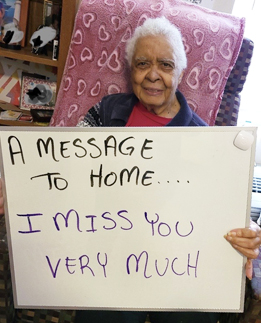 A MESSAGE
TO HOME....
I MISS YOU
VERY MUCH